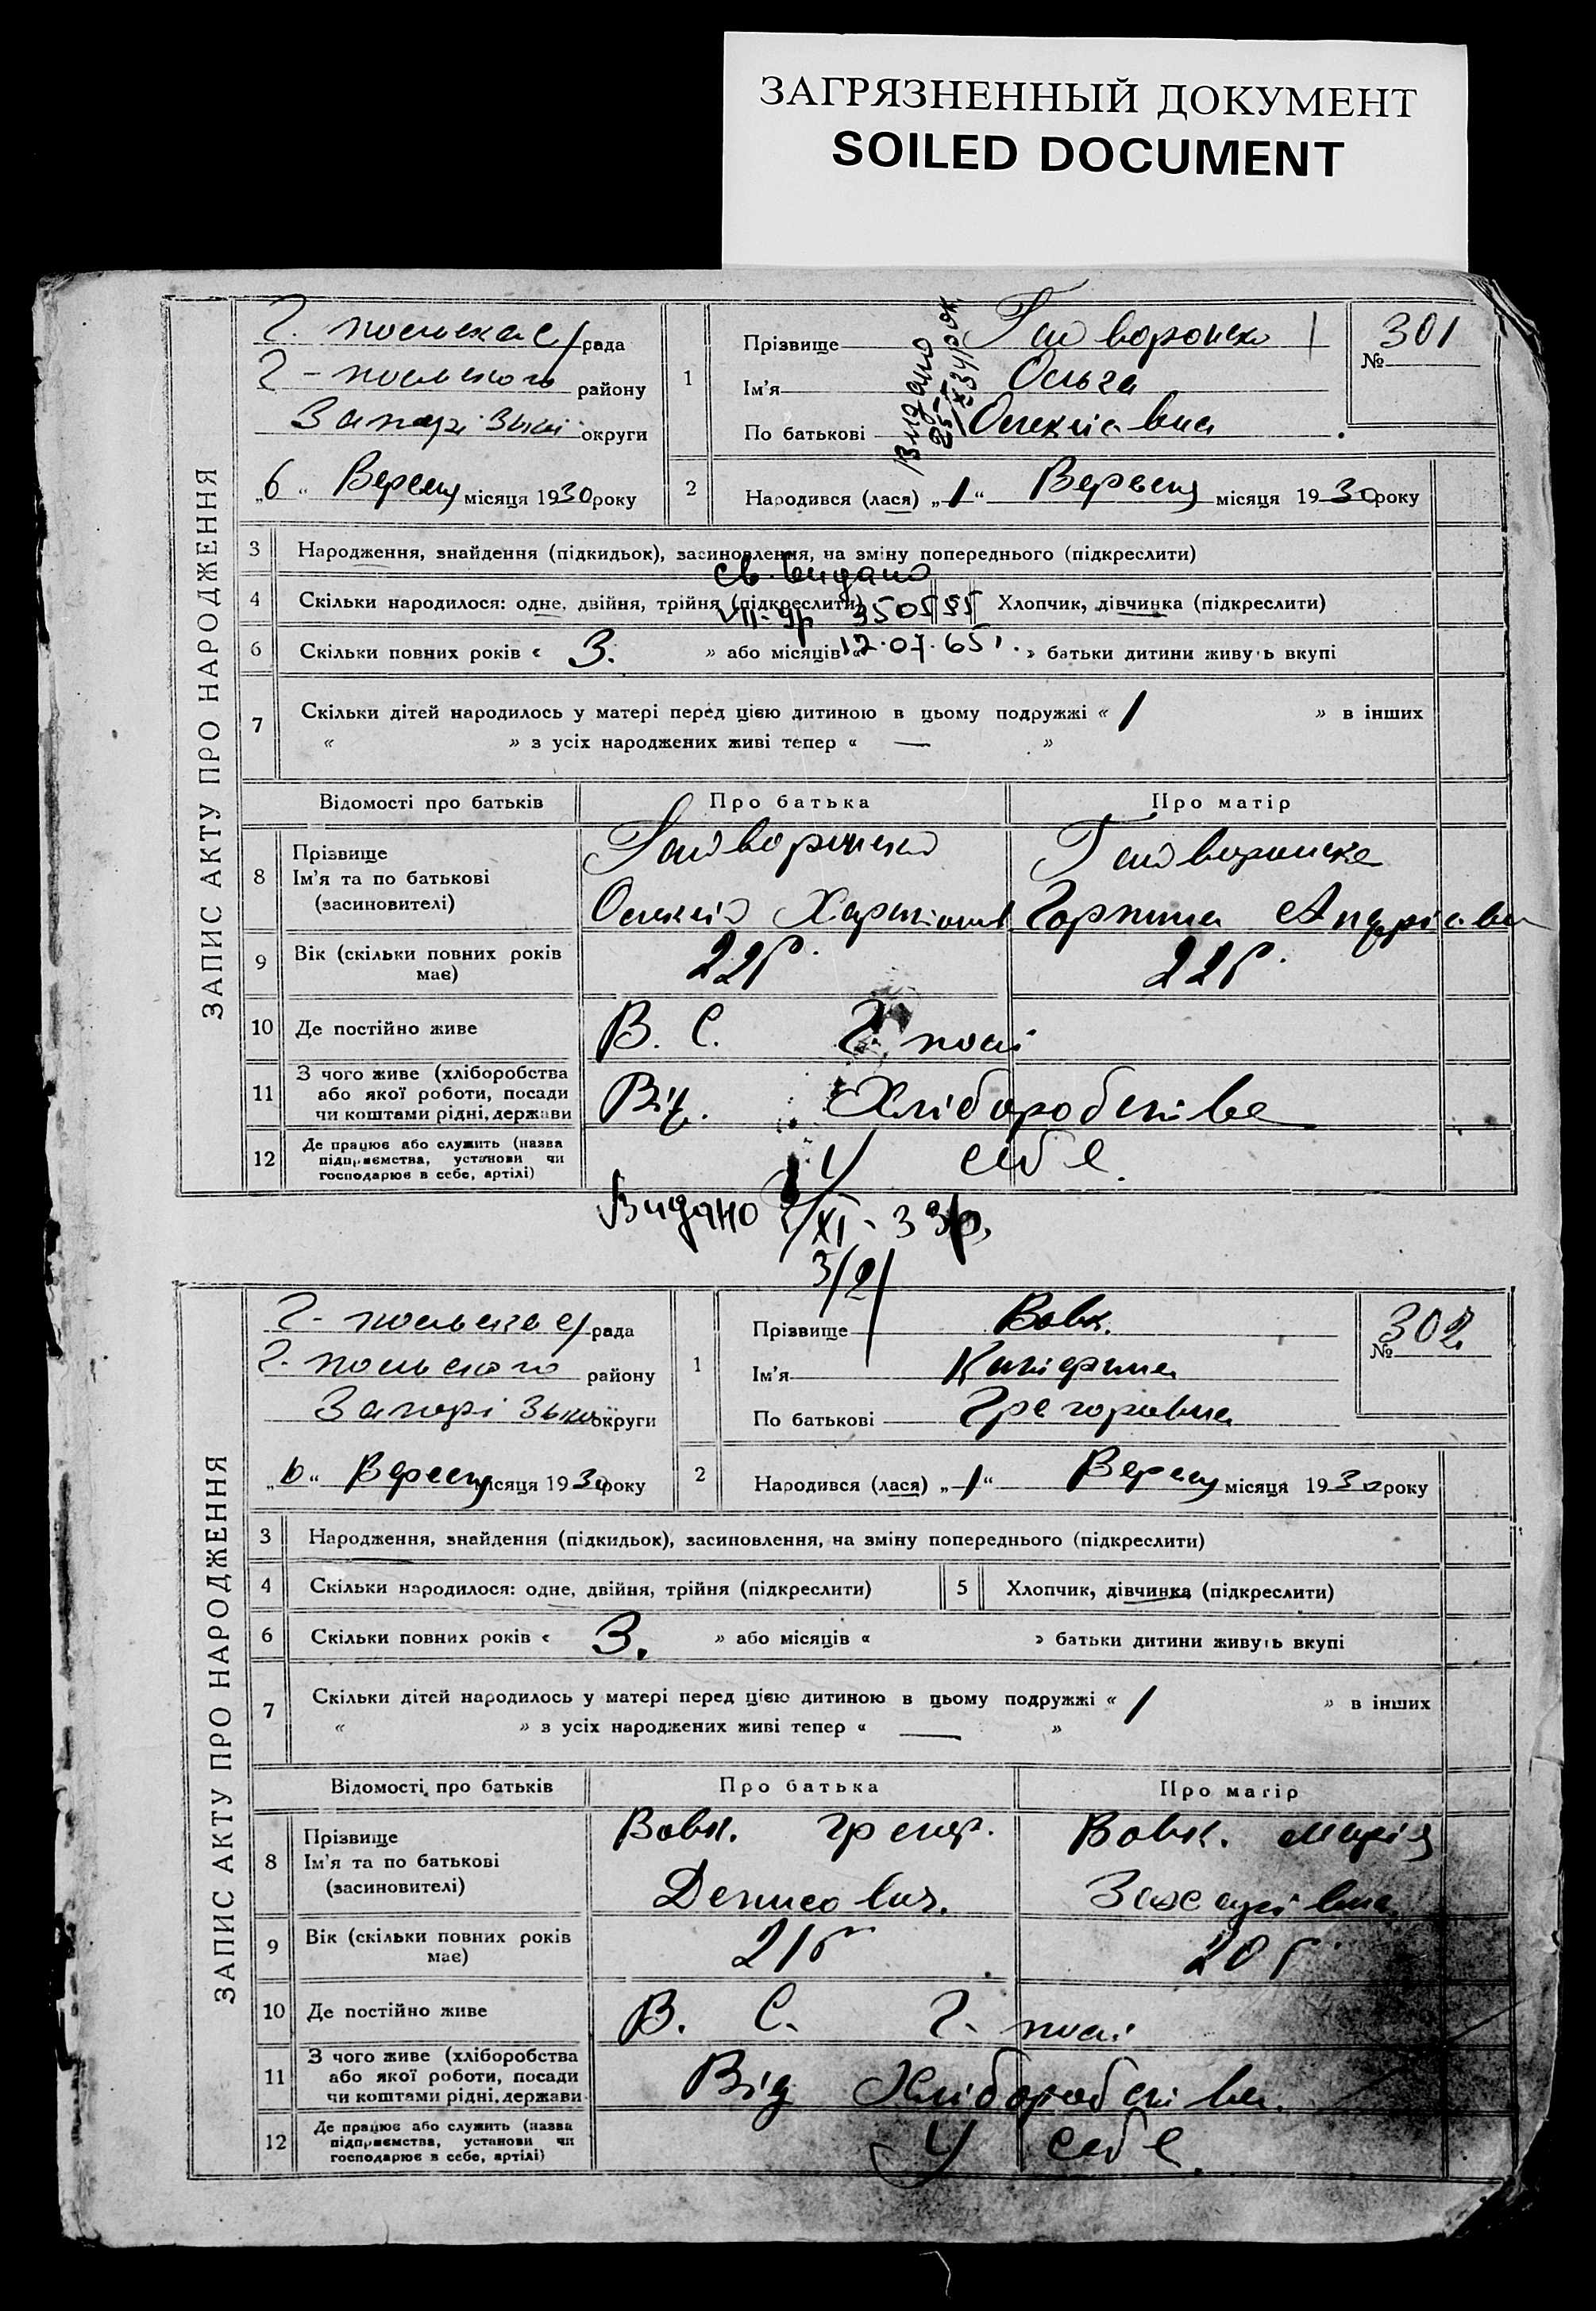 ЗАГРЯЗНЕННЫЙ ДОКУМЕНТ
SOILED DOCUMENT
ЗАПИС АКТУ ПРО НАРОДЖЕННЯ
Г. рада
Г-польского району
Запорізької округи
„6“ Вересня місяця 1930 року
1
Прізвище
Ім'я Ольга
По батькові Олексіівна
№ 301
Видано
2
Народився (лася) „1“ Вересня місяця 1930 року
3 Народження, знайдення (підкидьок), засиновлення, на зміну попереднього (підкреслити)
св. видано
4 Скільки народилося: одне, двійня, трійня (підкреслити) Хлопчик, дівчинка (підкреслити)
6 Скільки повних років « 3. » або місяців « » батьки дитини живуть вкупі
12.07.65
7 Скільки дітей народилось у матері перед цією дитиною в цьому подружжі « 1 » в інших
« » з усіх народжених живі тепер « — »
Відомості про батьків Про батька Про матір
8 Прізвище
Ім'я та по батькові
(засиновителі)
Олексій Горпина Андріівна
9 Вік (скільки повних років має) 22 г. 22 г.
10 Де постійно живе В. С. Г. полі
11 З чого живе (хліборобства
або якої роботи, посади
чи коштами рідні, держави Від. Хліборобства
12 Де працює або служить (назва
підприємства, установи чи
господарює в себе, артілі) У себе
Видано XI-33р.
ЗАПИС АКТУ ПРО НАРОДЖЕННЯ
Г. рада
Г. польского району
Запорізької округи
„6“ Вересня місяця 1930 року
1
Прізвище Вовк.
Ім'я
По батькові Грегоровна
№ 302
2
Народився (лася) „1“ Вересня місяця 1930 року
3 Народження, знайдення (підкидьок), засиновлення, на зміну попереднього (підкреслити)
4 Скільки народилося: одне, двійня, трійня (підкреслити) 5 Хлопчик, дівчинка (підкреслити)
6 Скільки повних років « 3. » або місяців « » батьки дитини живуть вкупі
7 Скільки дітей народилось у матері перед цією дитиною в цьому подружжі « 1 » в інших
« » з усіх народжених живі тепер « — »
Відомості про батьків Про батька Про матір
8 Прізвище
Ім'я та по батькові
(засиновителі)
Вовк. Вовк. Марія
Денисович.
9 Вік (скільки повних років має) 21 г 20 г
10 Де постійно живе В. С. Г. полі
11 З чого живе (хліборобства
або якої роботи, посади
чи коштами рідні, держави Від Хліборобства.
12 Де працює або служить (назва
підприємства, установи чи
господарює в себе, артілі) У себе.